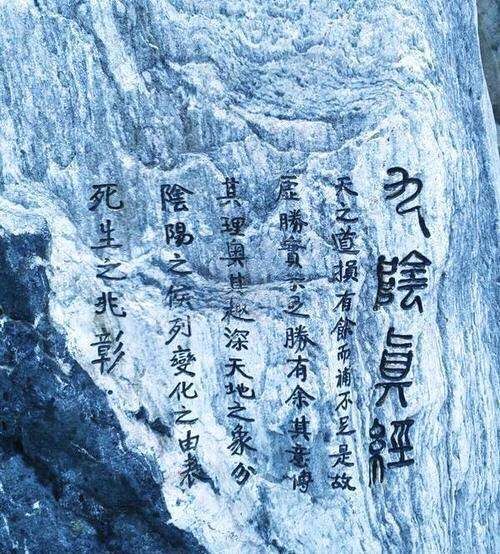 九陰真經
天之道損有餘而補不足是故
虛勝實不足勝有余其意博
其理奧其趣深天地之象分
陰陽之候列變化之由表
死生之兆彰